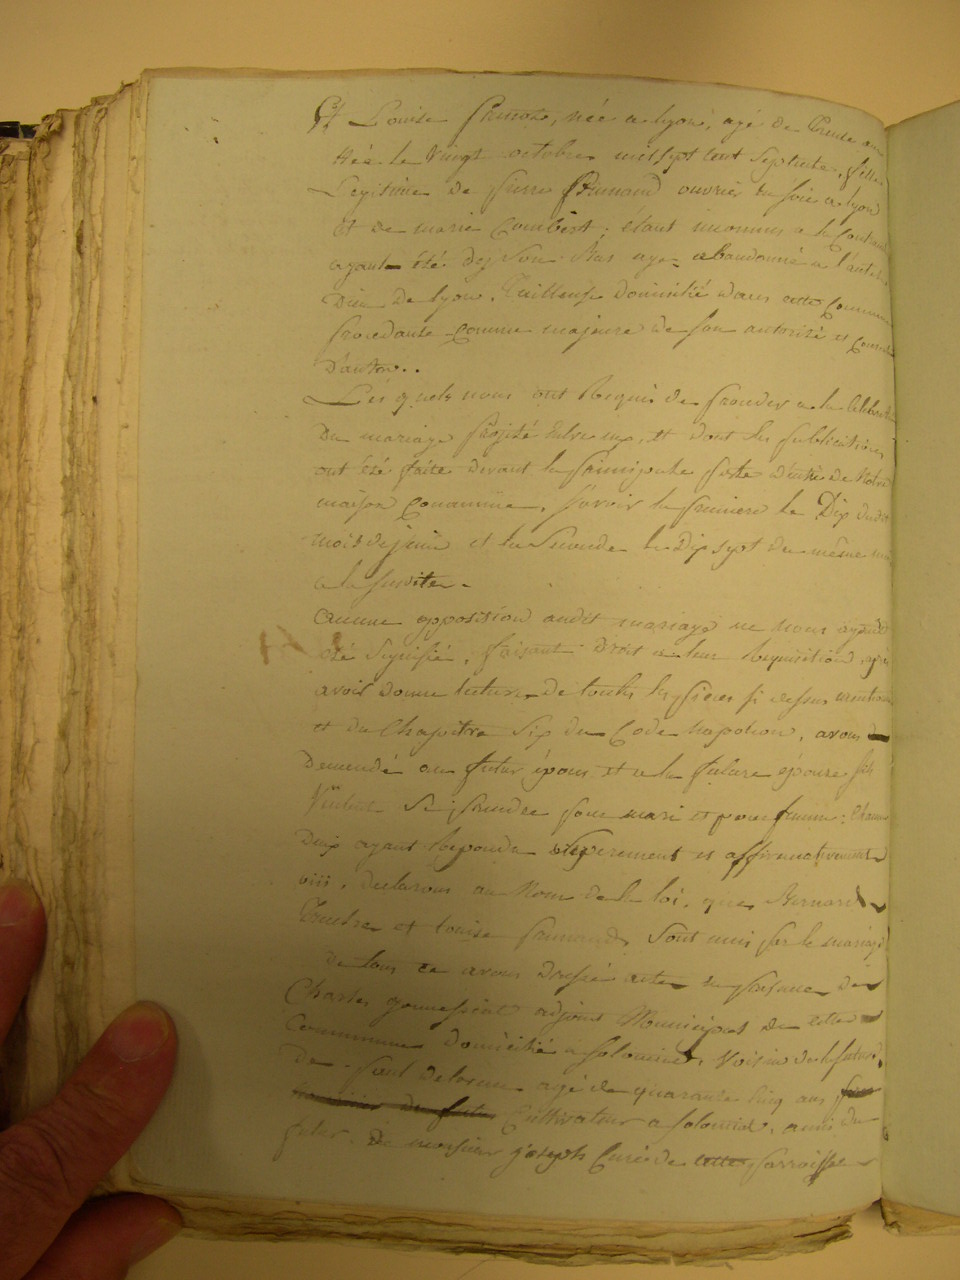 Et Louise frunand, née a lyon, agé de trente an
née le vingt octobre mil sept cent septente, fille
Legitime de pierre frunand ouvrier en soie a lyon
et de marie Combert, étant inconnus a la Contrac
ayant été dej son bas age abandonné a l'autel
Dieu de lyon, tailleuse domicilié dans cette Commune
procedante comme majeure de son autorité et
D'autre..
Les quels nous ont Requis de proceder a la Celebration
Du mariage projeté entre eux, et dont les publications
ont été faite devant la principale porte d'entrée de Notre
maison Commune, savoir la premiere le Dix dudit
mois de juin et la seconde le Dix sept du même mois
a la suvite.
aucune opposition audit mariage ne nous ayant
été signifié, faisant Droit a leur Requisition, après
avoir donne lecture De toutes les pieces si dessus mention
et du Chapitre Six du Code Napoleon, avons
Demendé au futur époux et a la future épouse s'ils
veulent Se prendre pour mari et pour femme: Chacun
Deux ayant Repondu separement et affirmativement
declarons au Nom de la loi, que Bernard
et Louise frunand, sont unis par le mariage
de tous ce avons dressé acte en presence de
Charles adjoint Municipal de cette
Commune Domicilié a solomiat, voisin de la future
De paul delorme agé de quarante cinq ans
Cultivateur a solomiat, ami du
futur. De monsieur joseph Curé de cette parroisse